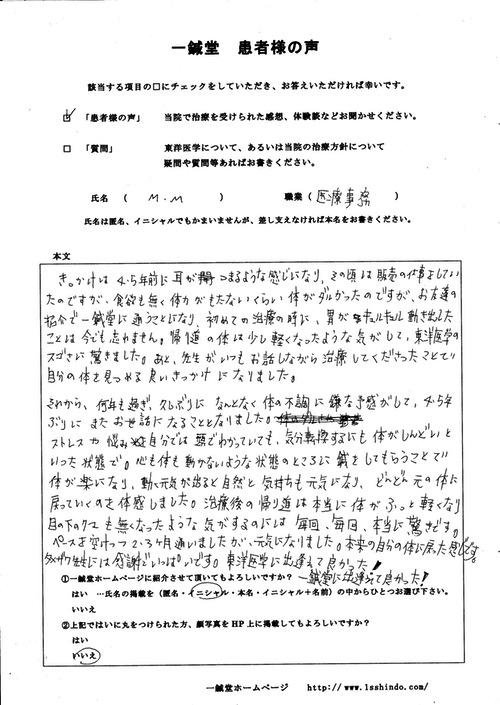 一鍼堂 患者様の声
該当する項目の□にチェックをしていただき、お答えいただければ幸いです。
☑ 「患者様の声」 当院で治療を受けられた感想、体験談などお聞かせください。
□ 「質問」 東洋医学について、あるいは当院の治療方針について
疑問や質問等あればお書きください。
氏名 ( M.M ) 職業 ( 医療事務 )
氏名は匿名、イニシャルでもかまいませんが、差し支えなければ本名をお書きください。
本文
きっかけは4.5年前に耳が つまるような感じになり、その頃は販売の仕事をしてい
たのですが、食欲も無く体力がもたないくらい体がダルかったのですが、お友達の
紹介で一鍼堂に通うことになり、初めての治療の時に、胃がキュルキュル動き出した
ことは今でも忘れません。帰り道の体は少し軽くなったような気がして、東洋医学の
スゴさに驚きました。あと、先生がいつもお話しながら治療してくださったことで
自分の体を見つめる良いきっかけになりました。
それから、何年も過ぎ、久しぶりになんとなく体の不調に嫌な予感がして、4.5年
ぶりにまたお世話になることとなりました。
ストレスや悩み 自分では頭でわかっていても、気分転換するにも体がしんどいと
いった状態で。心も体も動かないような状態のところに鍼をしてもらうことで
体が楽になり、動く元気が出ると自然と気持ちも元気になり、どんどん元の体に
戻っていくのを体感しました。治療後の帰り道は本当に体がふっと軽くなり
目の下のクマも無くなったような気がするのには毎回、毎回、本当に驚きです。
ペースを空けつつ2.3ヶ月通いましたが、元気になりました。本来の自分の体に戻れた感じです。
先生には感謝でいっぱいです。東洋医学に出逢えて良かった!
一鍼堂に出逢えて良かった!
①一鍼堂ホームページに紹介させて頂いてもよろしいですか?
はい …氏名の掲載を(匿名・イニシャル・本名・イニシャル+名前)の中からひとつお選び下さい。
いいえ
②上記ではいに丸をつけられた方、顔写真をHP上に掲載してもよろしいですか?
はい
いいえ
一鍼堂ホームページ http://www.1sshindo.com/